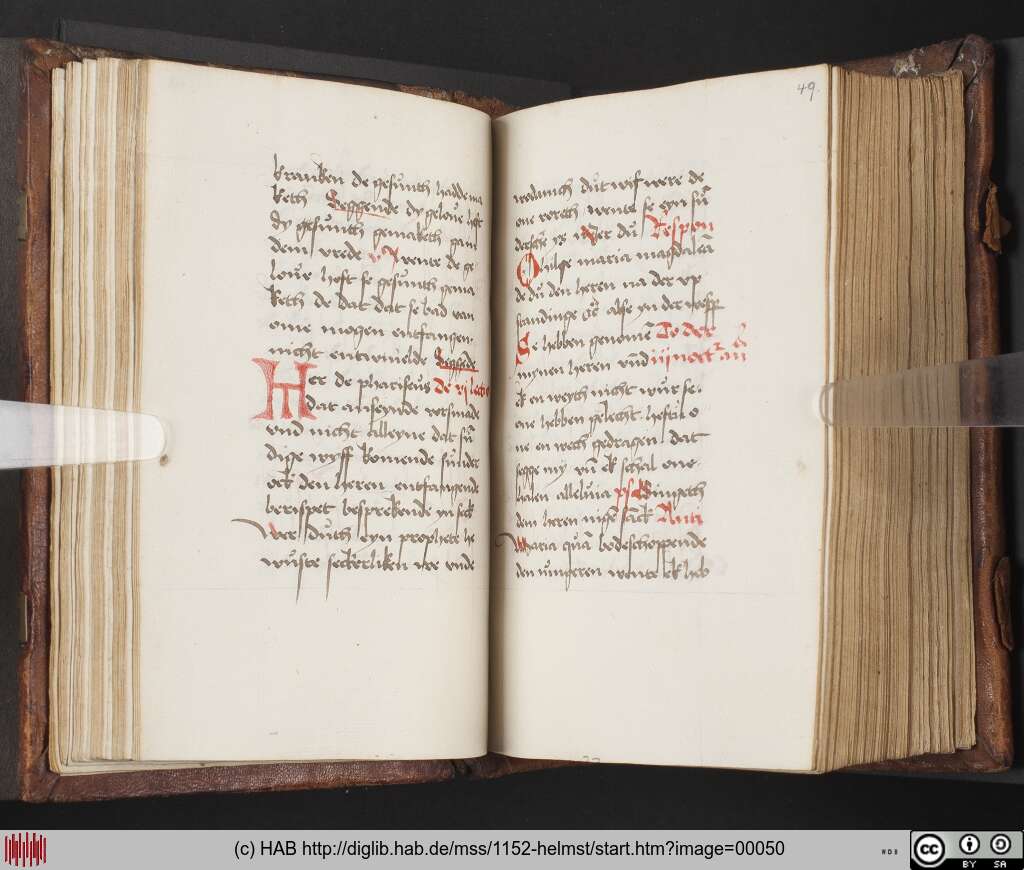 kranken de gesunth hadde ma
keth Seggende dy geloue heft
dy gesunth gemaketh gam
dem vrede vX wente de ge
loue heft se gesunth gema
keth de dat dat se bad van
eme mogen entfangen
nicht entwiuelde Seggende
Her de phariseus De vj lectio
dat anseynde vorsmade
vnd nicht alleyne dat sun
dige wyff komende sunder
ock den heren entfangende
berispet besprekende yn seck
Were duth eyn prophete he
wuste sekerliken we vnde
49.
wodanich dut wif were de
one roreth wente se eyn sun
dersche is Her du Respon
O hilge maria magdalena
de du den heren na der vp
standinge
Se hebben genomen To der
mynen heren vnd iij noct an
ek en weyth nicht wur se
one hebben gelecht hefstu o
ne en wech gedragen dat
segge my vn ek schal one
halen alleluia ps Singeth
dem heren nige sanck Anti
Maria qua bodeschoppende
den iungeren wente ek heb
(c) HAB http://diglib.hab.de/mss/1152-helmst/start.htm?image=00050
WDB
cc
BY SA